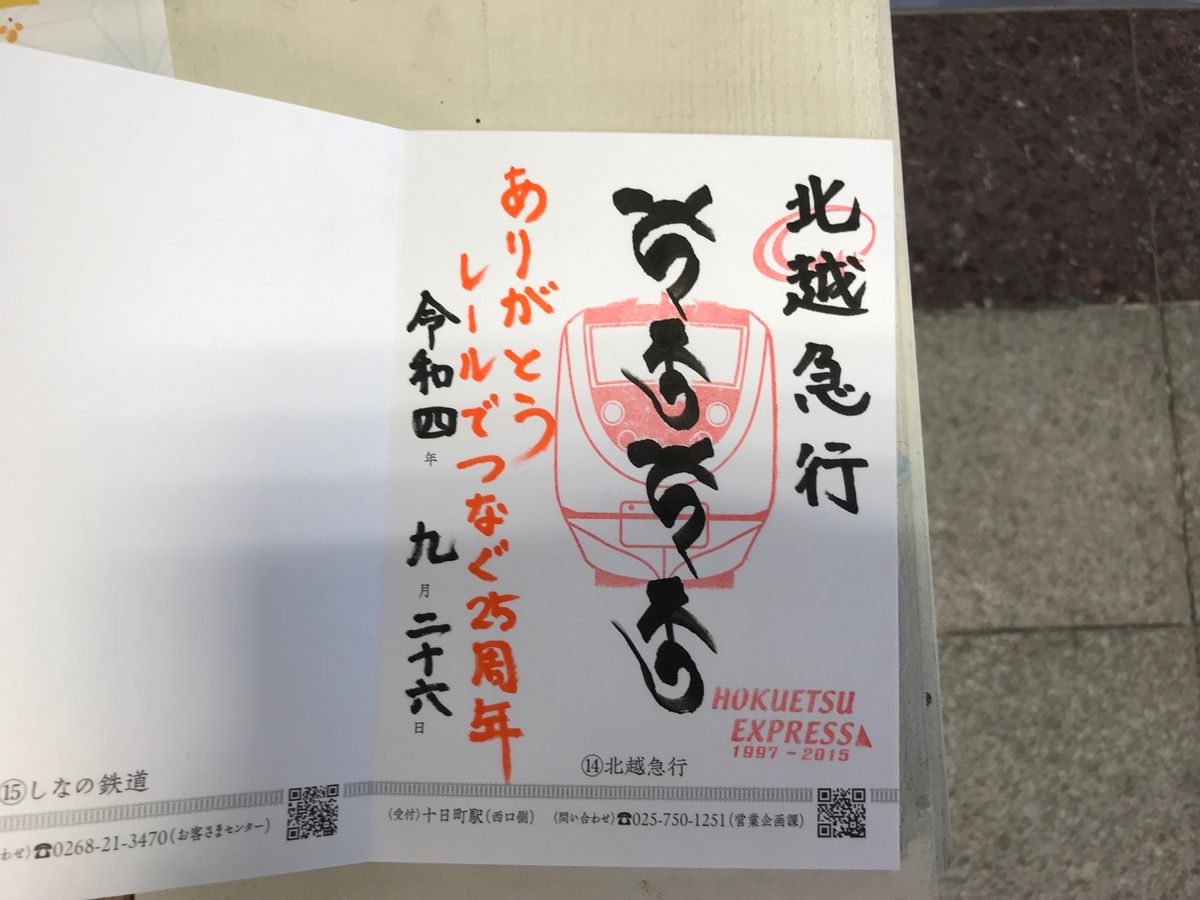 北越急行
ありがとう
レールでつなぐ25周年
令和四年 九月二十六日
HOKUETSU
EXPRESS
1997-2015
⑭北越急行
〈受付〉十日町駅(西口側) 〈問い合わせ〉☎025-750-1251(営業企画課)
⑮しなの鉄道
わせ〉☎0268-21-3470(お客さまセンター)